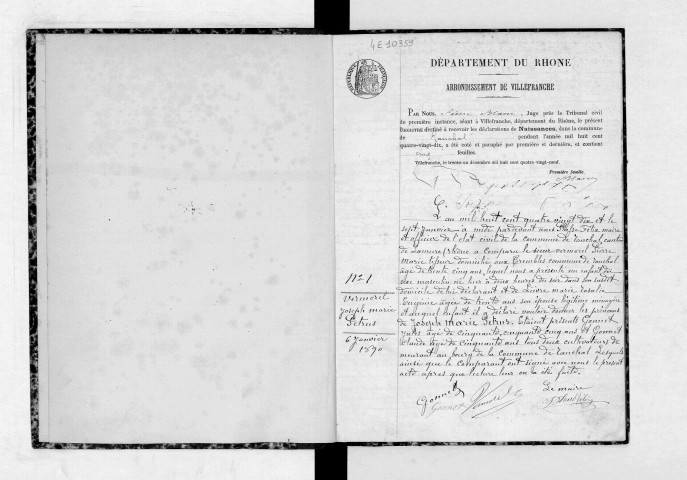 4E10359
DÉPARTEMENT DU RHONE
ARRONDISSEMENT DE VILLEFRANCHE
PAR NOUS, Juge près le Tribunal civil
de première instance, séant à Villefranche, département du Rhône, le présent
Registre destiné à recevoir les déclarations de Naissances, dans la commune
de Ranchal pendant l'année mil huit cent
quatre-vingt-dix, a été coté et paraphé par première et dernière, et contient
cinq feuilles.
Villefranche, le trente un décembre mil huit cent quatre-vingt-neuf.
Première feuille.
L'an mil huit cent quatre vingt dix et le
sept janvier à midi pardevant nous maire
et officier de l'état civil de la commune de ranchal canton
de Lamure (rhône a comparu le sieur vermorel Pierre
Marie domicilié aux commune de ranchal
âgé de trente cinq ans, lequel nous a présenté un enfant du
sexe masculin né hier à deux heures du soir dans son susdit
domicile de lui déclarant et de marie rosalie
Eugénie âgée de trente ans son épouse légitime ménagère
et auquel enfant il a déclaré vouloir donner les prénoms
de Joseph Marie Petrus. Etaient présents Gonnet
âgé de cinquante cinq ans et Gonnet
Claude âgé de cinquante ans tous deux cultivateurs de
meurant au bourg de la commune de ranchal Lesquels
ainsi que le Comparant ont signé avec nous le présent
acte après que lecture leur en a été faite.
N° 1
Vermorel
Joseph marie
Petrus
6 Janvier
1890
Le maire
Gonnet
Gonnet Vermorel